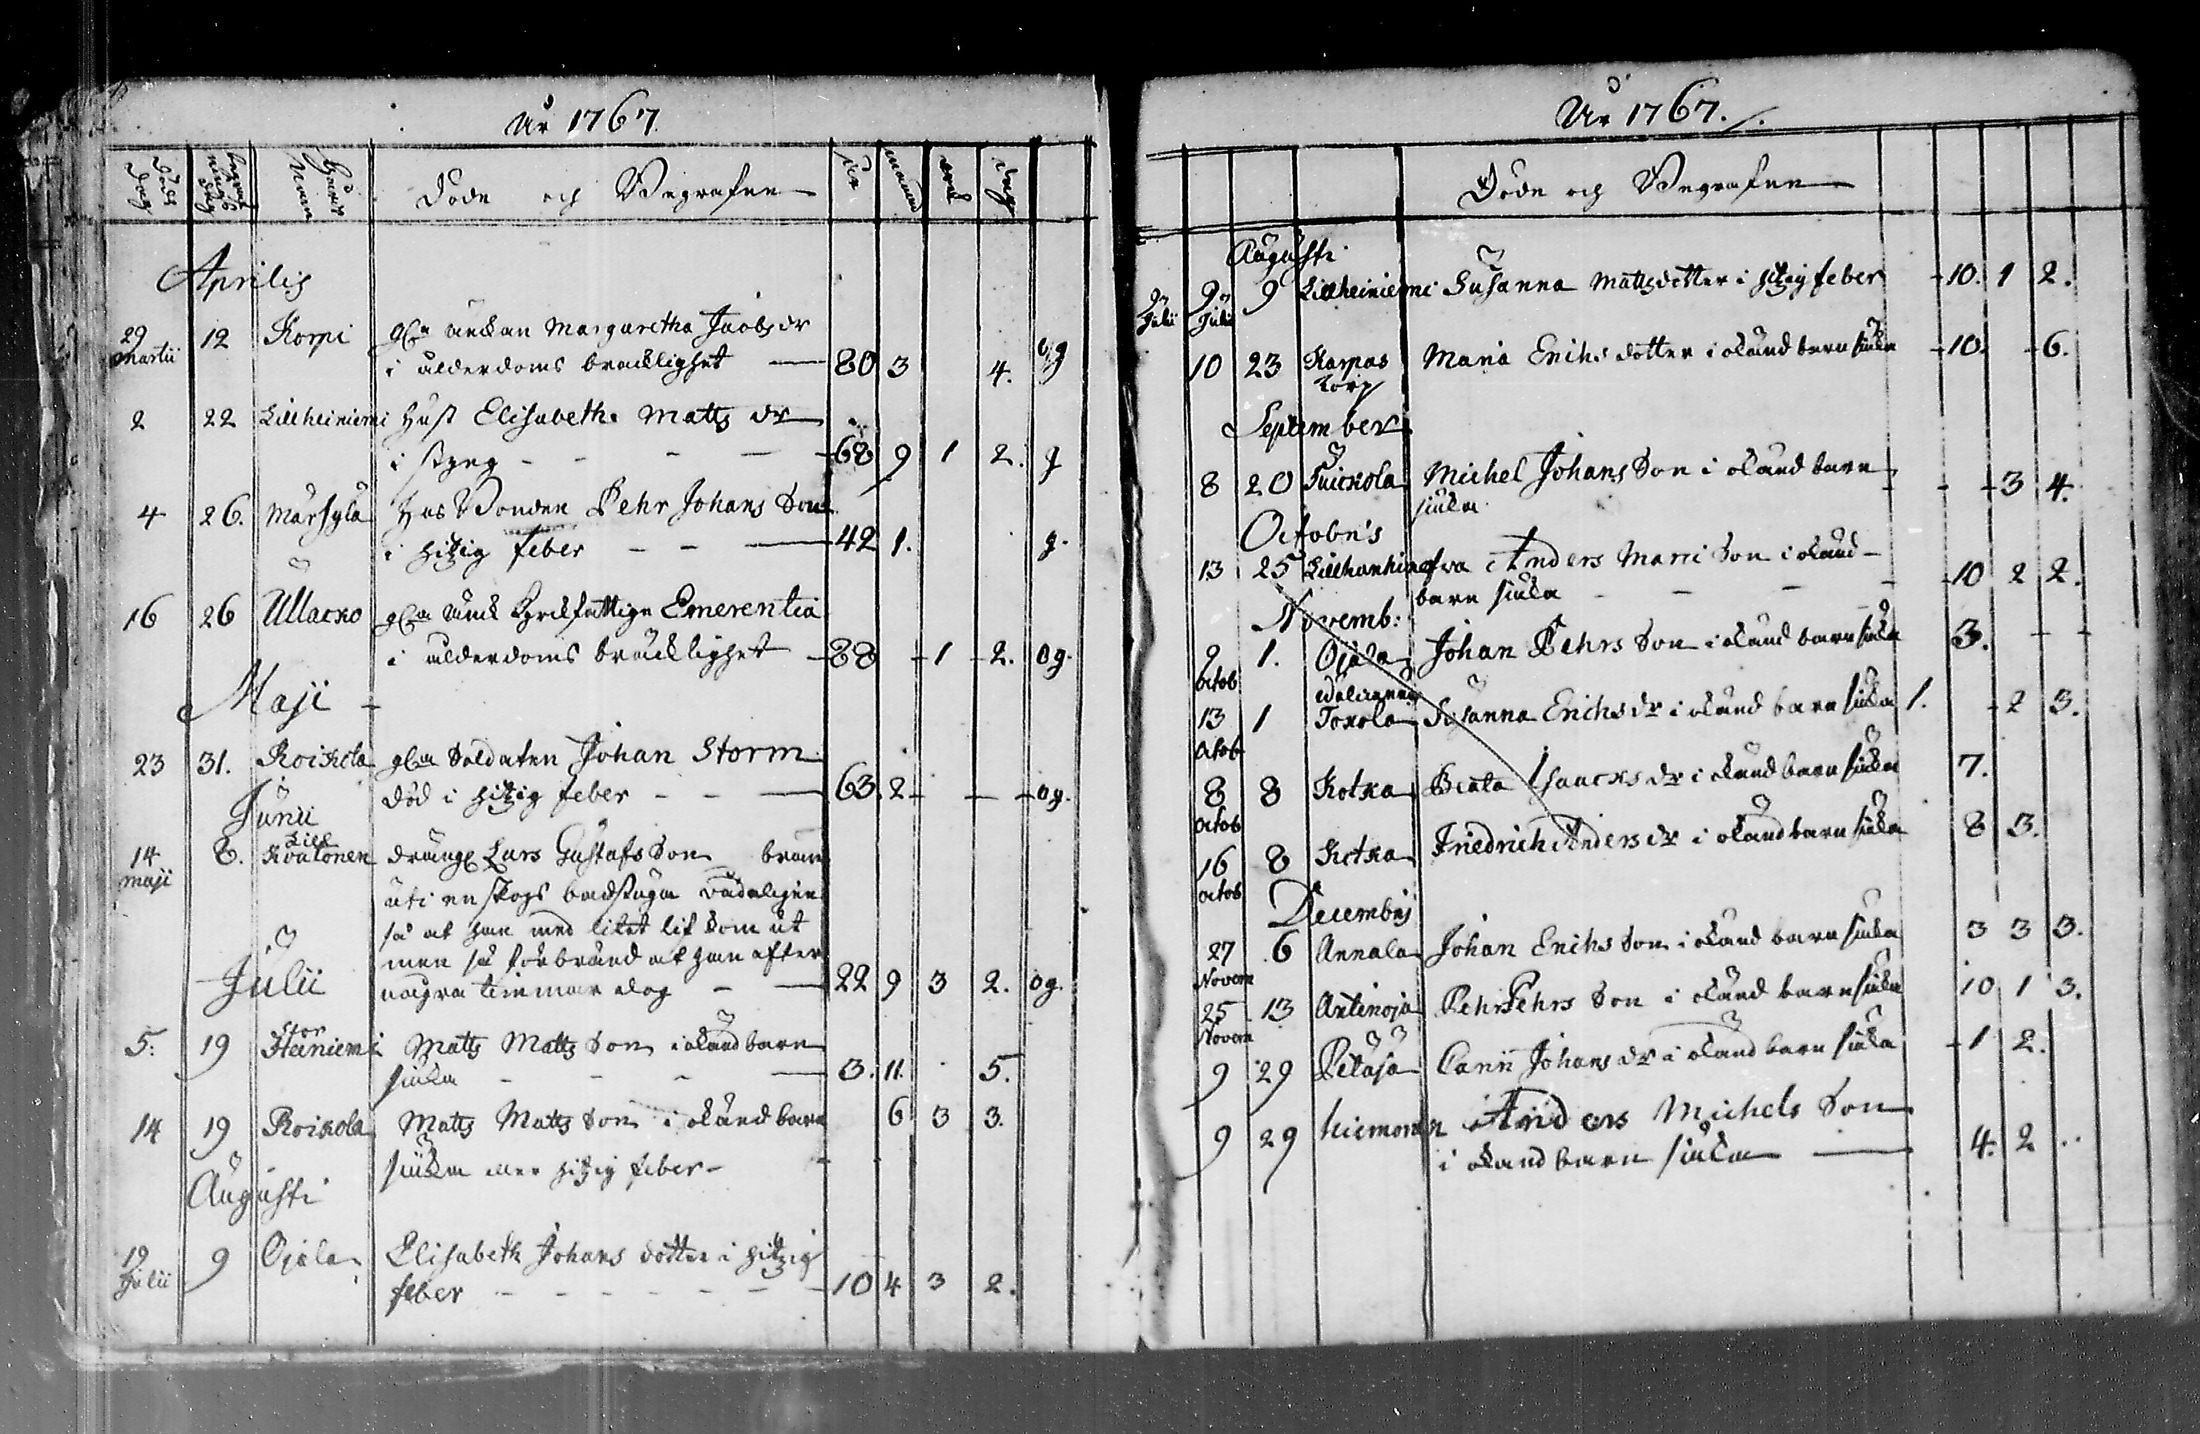 År 1767.
Döds dag
begrafnings dag
Gårds Namn
Döde och Begrafne
år
månad
vek
dag
Aprilis
29 Martii 12 Korpi gla änckan Margaretha Jacobs dr
i ålderdoms bräcklighet 80 3 4. og
2 22 Lillheiniemi Hust Elisabetha Matts dr
i styng 68 9 1 2. g
4 26. Märsylä Bonden Pehr Johans Son
i hitzig feber 42 1. g.
16 26 Ullacko gla änck Emerentia
i ålderdoms bräcklighet 88 1 2. og.
Maji
23 31. Roikola gla Soldaten Johan Storm
död i hitzig feber 63. 2 og.
Junii
14 maji 8. Lill Koutonen dräng Lars Gustafs Son bran
uti en skogs badstuga vådeligen
så at han med litet lif kom ut
men så förbränd at han efter
några timmar dog 22 9 3 2. og.
Julii
5. 19 Stor Heiniemi Matts Matts Son i okänd barn
siuka 3. 11. 5.
14 19 Roikola Matts Matts Son i okänd barn 6 3 3.
siuka hitzig feber
Augusti
19 Julii 9 Ojala Elisabeth Johans dotter i hitzig
feber 10 4 3 2.
År 1767.
Döde och Begrafne
Augusti
Julii 9 Lillheiniemi Susanna Mattsdotter i hitzig feber 10. 1 2.
10 23 Karpas torp Maria Erichs dotter i okänd barn siuka 10. 6.
September
8 20 Michel Johans Son i okänd barn
siuka 3 4.
Octobris
13 25 Anders Son i okänd
barn siuka 10 2 2.
Novemb:
9 octob 1. Ojala Johan Pehrs Son i okänd barn siuka 3.
13 octob 1 Toxola Susanna Erichs dr i okänd barn siuka 1. 2 3.
8 octob 8 Kotka Beata Isaacks dr i okänd barn siuka 7.
16 octob 8 Kotka Friedrich Anders dr i okänd barn siuka 8 3.
Decembris
27 Novem 6 Annala Johan Erichs Son i okänd barn siuka 3 3 3.
25 Novem 13 Antinoja Pehr Pehrs Son i okänd barn siuka 10 1 3.
9 29 Petäjä Carin Johans dr i okänd barn siuka 1 2.
9 29 Anders Michels Son
i okänd barn siuka 4. 2